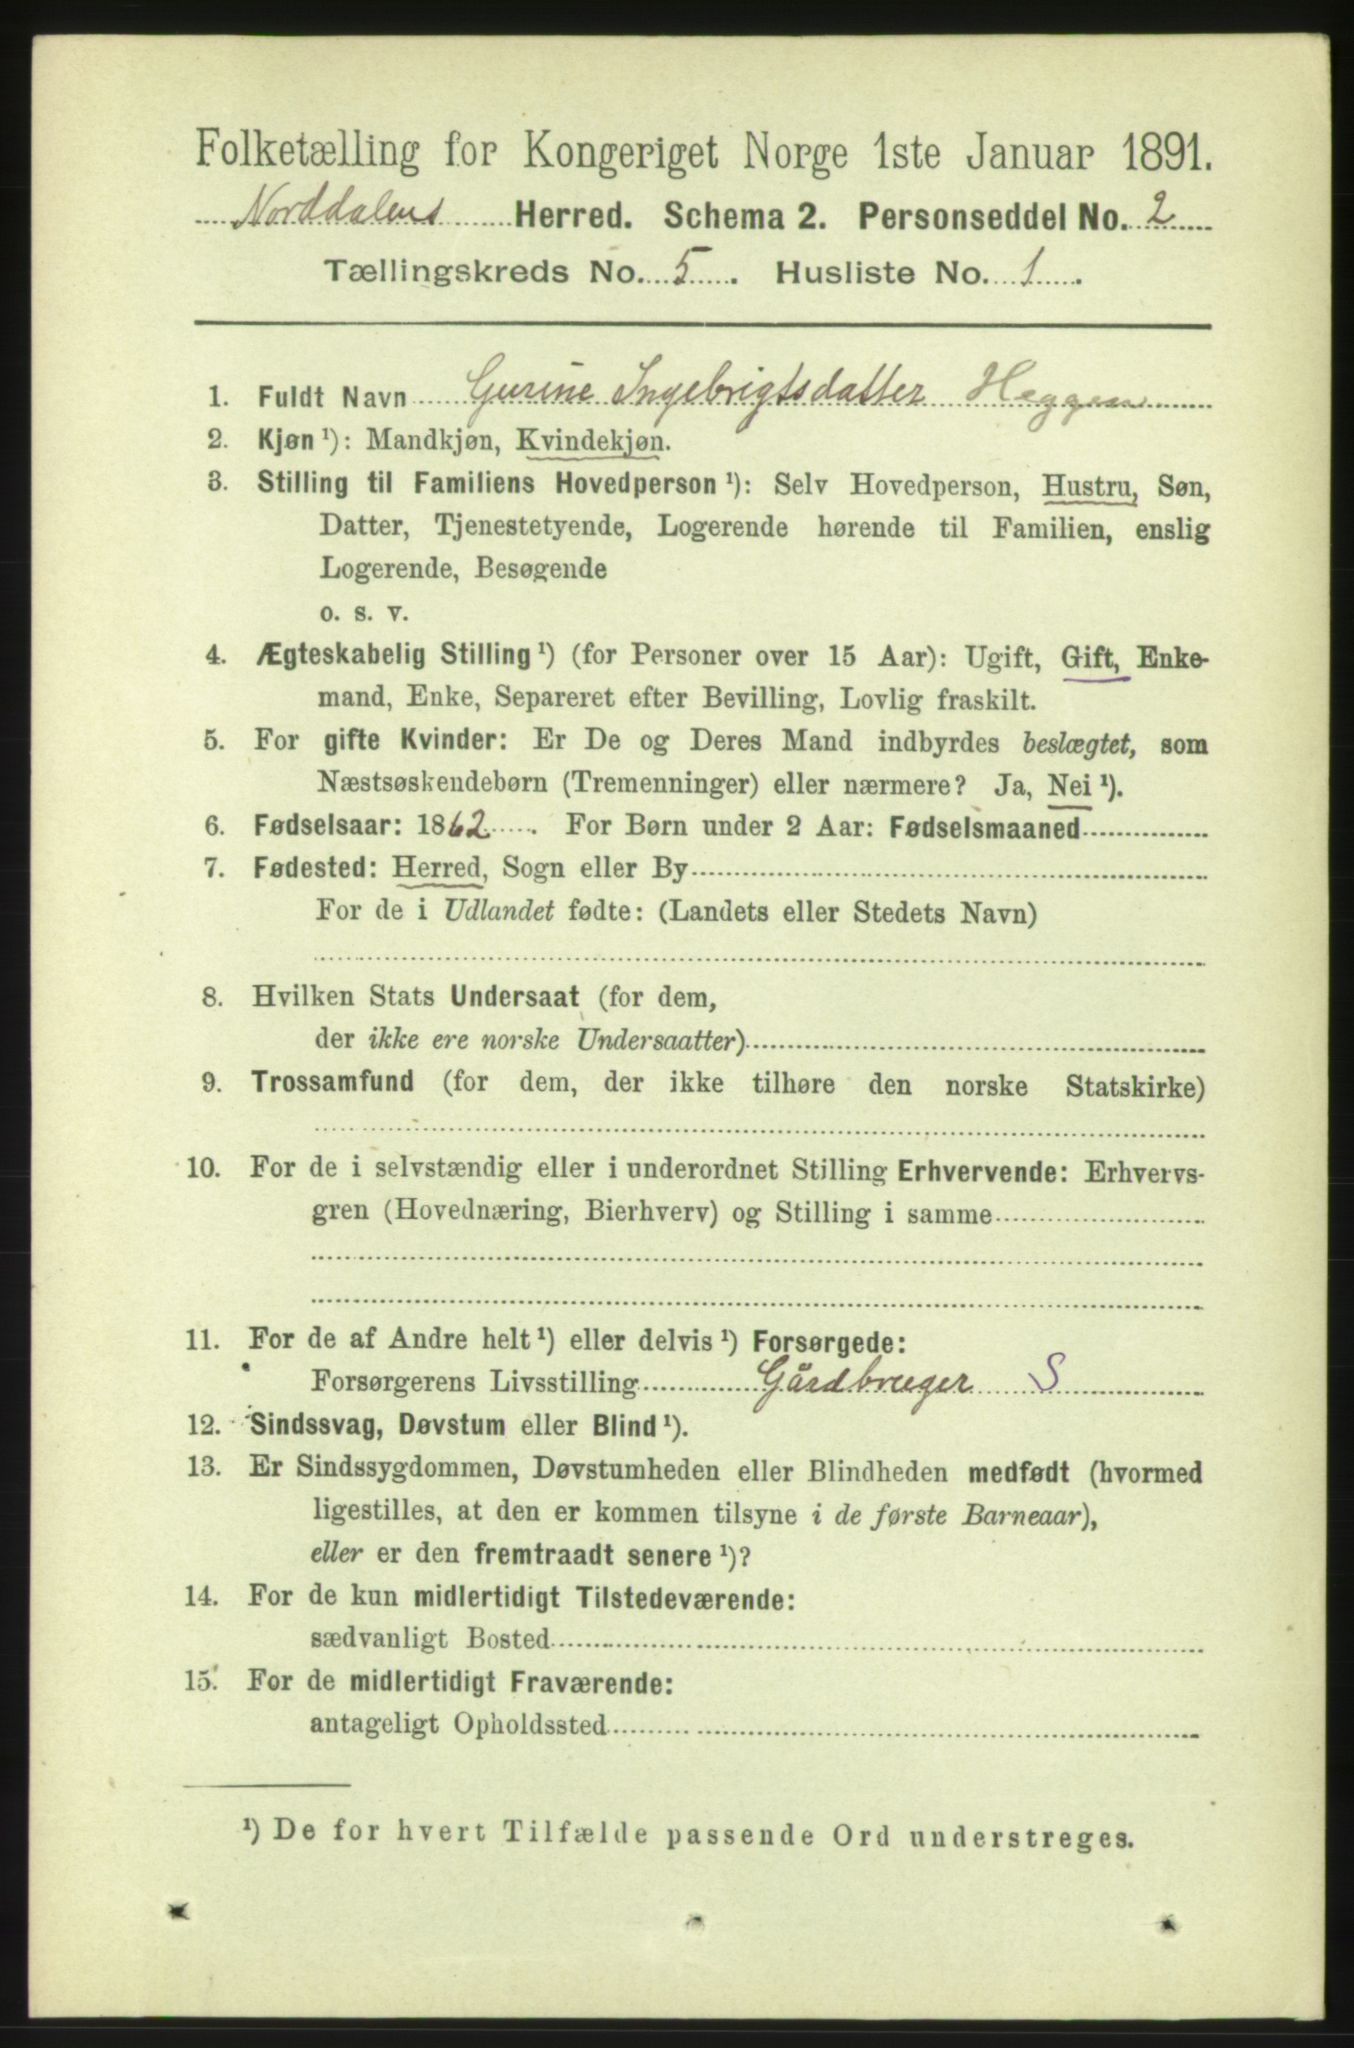 Folketælling for Kongeriget Norge 1ste Januar 1891.
Norddalens Herred. Schema 2. Personseddel No. 2
Tællingskreds No. 5. Husliste No. 1.
1. Fuldt Navn Gurine Ingebrigtsdatter Heggen
2. Kjøn ¹): Mandkjøn, Kvindekjøn.
3. Stilling til Familiens Hovedperson ¹): Selv Hovedperson, Hustru, Søn,
Datter, Tjenestetyende, Logerende hørende til Familien, enslig
Logerende, Besøgende
o. s. v.
4. Ægteskabelig Stilling ¹) (for Personer over 15 Aar): Ugift, Gift, Enke-
mand, Enke, Separeret efter Bevilling, Lovlig fraskilt.
5. For gifte Kvinder: Er De og Deres Mand indbyrdes beslægtet, som
Næstsøskendebørn (Tremenninger) eller nærmere? Ja, Nei ¹).
6. Fødselsaar: 1862. For Børn under 2 Aar: Fødselsmaaned
7. Fødested: Herred, Sogn eller By
For de i Udlandet fødte: (Landets eller Stedets Navn)
8. Hvilken Stats Undersaat (for dem,
der ikke ere norske Undersaatter)
9. Trossamfund (for dem, der ikke tilhøre den norske Statskirke)
10. For de i selvstændig eller i underordnet Stilling Erhvervende: Erhvervs-
gren (Hovednæring, Bierhverv) og Stilling i samme
11. For de af Andre helt ¹) eller delvis ¹) Forsørgede:
Forsørgerens Livsstilling Gårdbruger S
12. Sindssvag, Døvstum eller Blind ¹).
13. Er Sindssygdommen, Døvstumheden eller Blindheden medfødt (hvormed
ligestilles, at den er kommen tilsyne i de første Barneaar),
eller er den fremtraadt senere ¹)?
14. For de kun midlertidigt Tilstedeværende:
sædvanligt Bosted
15. For de midlertidigt Fraværende:
antageligt Opholdssted
¹) De for hvert Tilfælde passende Ord understreges.